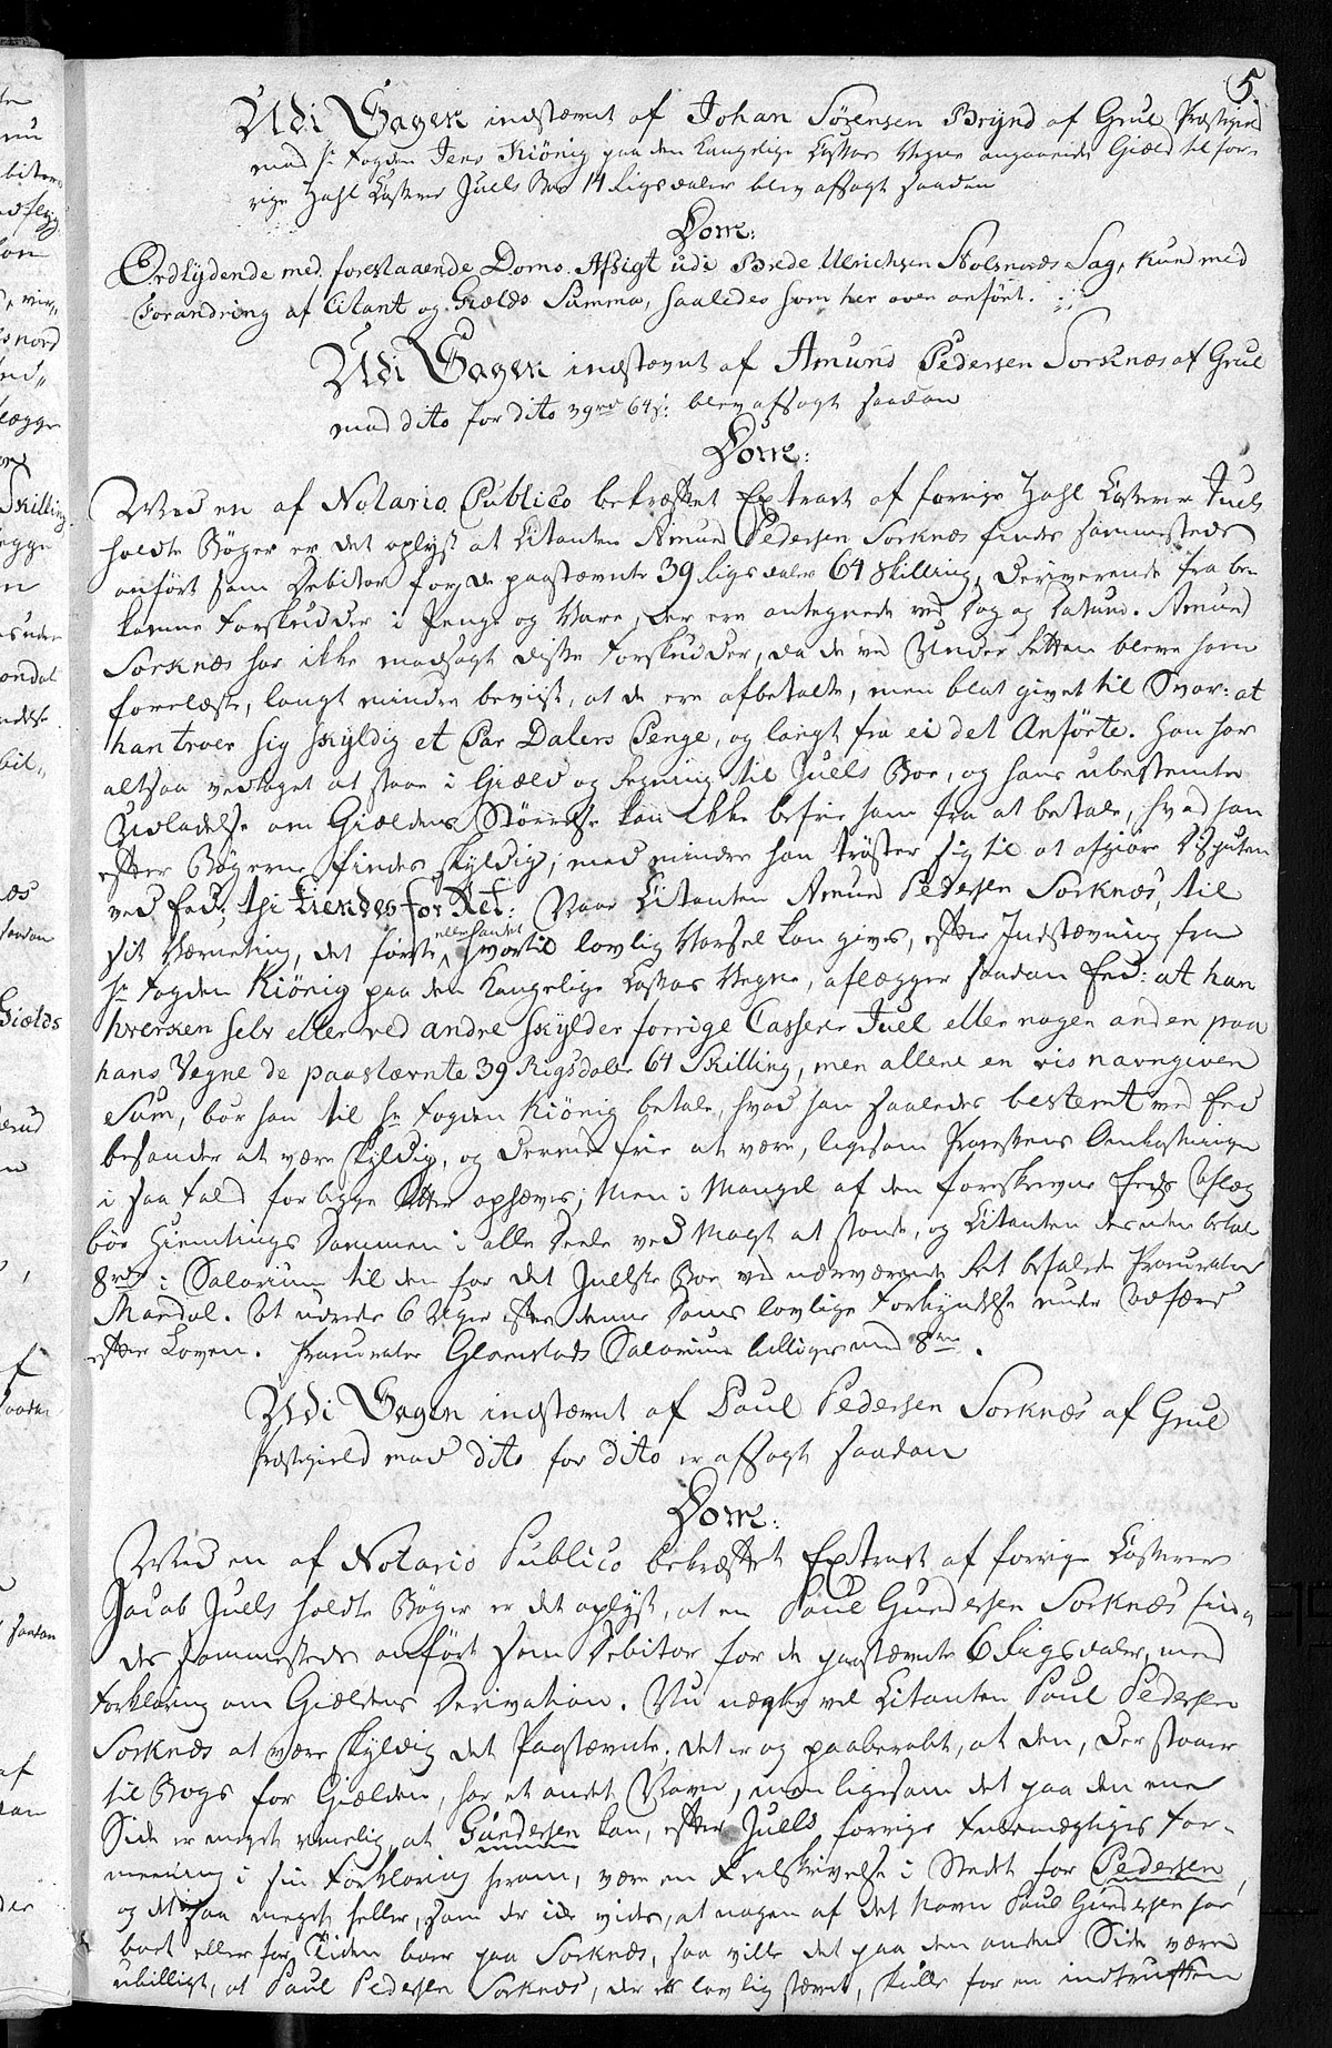 5.
Udi Sagen indstævnt af Johan Sørensen Brynd af Grue Præstegield
mod Hr Fogden Jens Kiönig paa den Kongelige Casses Vegne angaaende Giæld til for-
rige Zahl Casserer Juels Boe 14 Rigsdaler blev afsagt saadan
Dom:
Ordlydende med forestaaende Doms Afsigt udi Brede Ulrichsen Nolsnords Sag, kund med
Forandring af Citant og Giælds Summa, saaledes som her oven anført.
Udi Sagen indstævnt af Amund Pedersen Sorknæs af Grue
mod dito for dito 39 rd 64 s: blev afsagt saadan
Dom:
Med en af Notario Publico bekræftet Extract af forrige Zahl Casserer Juels
holdte Bøger er det oplyst at Citanten Amund Pedersen Sorknæs findes sammesteds
anført som Debitor for de paastævnte 39 Rigsdaler 64 Skilling, deriverende fra be-
komne Forskudder i Penge og Vare, der ere antegnede ved Dag og Datum. Amund
Sorknæs har ikke modsagt disse Forskudder, da de ved Under Retten bleve ham
forelæste, langt mindre beviist, at de ere afbetalte, men blot givet til Svar: at
han troer sig skyldig et Par Dalers Penge, og langt fra ei det Anførte. Han har
altsaa vedtaget at staae i Giæld og Regning til Juells Boe, og hans ubestemte
Udladelse om Giældens Størrelse kan ikke befrie ham fra at betale, hvad han
efter Bøgerne findes skyldig, med mindre han trøster sig til at afgiøre Disputen
ved Eed; thi kiendes for Ret: Naar Citanten Amund Pedersen Sorknæs, til
sit Værneting, det første eller andet hvortil lovlig Varsel kan gives, efter Indstævning fra
Hr Fogden Kiönig paa den Kongelige Casses Vegne, aflægger saadan Eed: at han
hverken selv eller ved andre skylder forrige Casserer Juel eller nogen anden paa
hans Vegne de paastævnte 39 Rigsdaler 64 Skilling, men allene en vis navngiven
Sum, bør han til Hr Fogden Kiönig betale, hvad han saaledes bestemt ved Eed
besander at være skyldig, og dermed frie at være, ligesom Processens Omkostninger
i saa Fald for begge Retter ophæves; Men i Mangel af den foreskrevne Eeds Aflæg
bør Hiemtings Dommen i alle Deele ved Magt at stande, og Citanten desuden betale
8 rd i Salarium til den for det Juellske Boe ved nærværende Ret befalede Procurator
Mandal. At udrede 6 Uger efter denne Doms lovlige Forkyndelse under Adfærd
efter Loven. Procurator Glomstads Salarium billiges med 8 rd.
Udi Sagen indstævnt af Paul Pedersen Sorknæs af Grue
Præstegield mod dito for dito er afsagt saadan
Dom:
Med en af Notario Publico bekræftet Extract af forrige Casserer
Jacob Juells holdte Bøger er det oplyst, at en Paul Gundersen Sorknæs fin-
des sammesteds anført som Debitor for de paastævnte 6 Rigsdaler, med
Forklaring om Giældens Derivation. Nu nægter vel Citanten Paul Pedersen
Sorknæs at være skyldig det Paastævnte, det er og paaberaabt, at den, der staaer
til Bogs for Giælden, har et andet Navn, men ligesom det paa den ene
Side er meget rimelig, at Gundersen kan, efter Juells forrige Fuldmægtiges For-
meening i sin Forklaring herom, være en Feilskrivelse i Stedet for Pedersen,
og det saa meget heller, som de ikke vides, at nogen af det Navn Paul Gundersen har
boet eller for Tiden boer paa Sorknæs, saa ville det paa den anden Side være
ubilligt, at Paul Pedersen Sorknæs, der er lovlig stævnt, skulle for en indtruffen